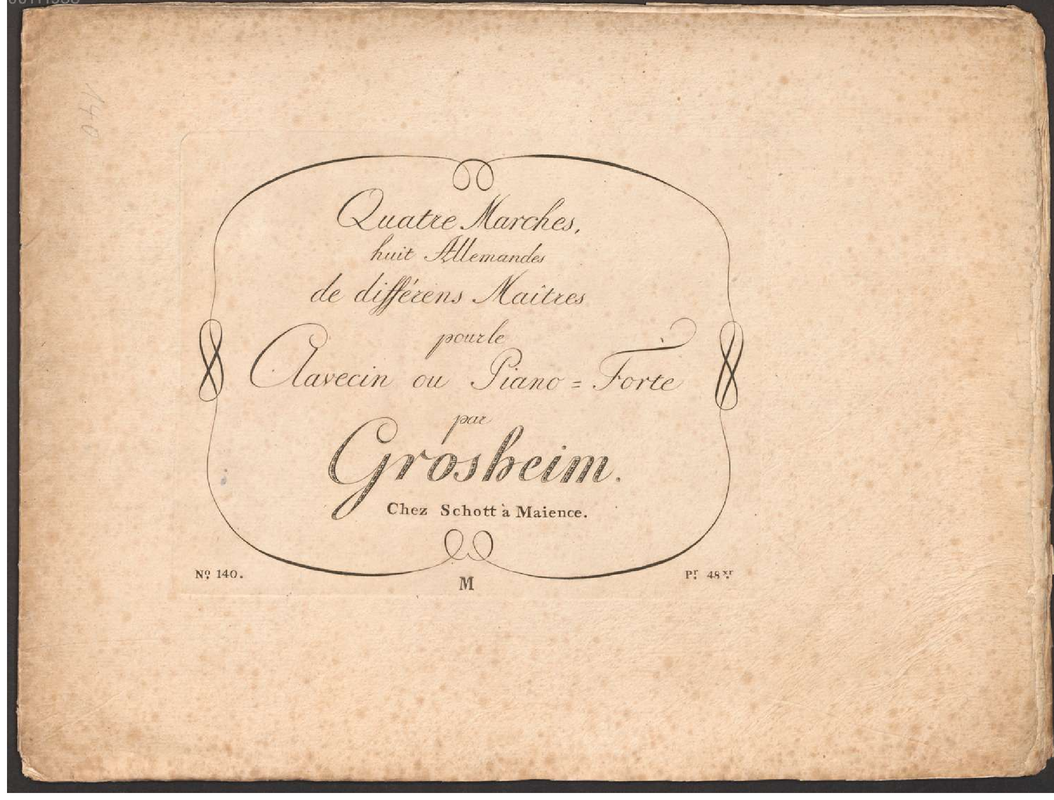 140
Quatre Marches,
huit Allemandes
de différens Maîtres
pour le
Clavecin ou Piano = Forte
par
Grosheim.
Chez Schott à Maience.
Nº 140.
M
Pr. 48 Xr